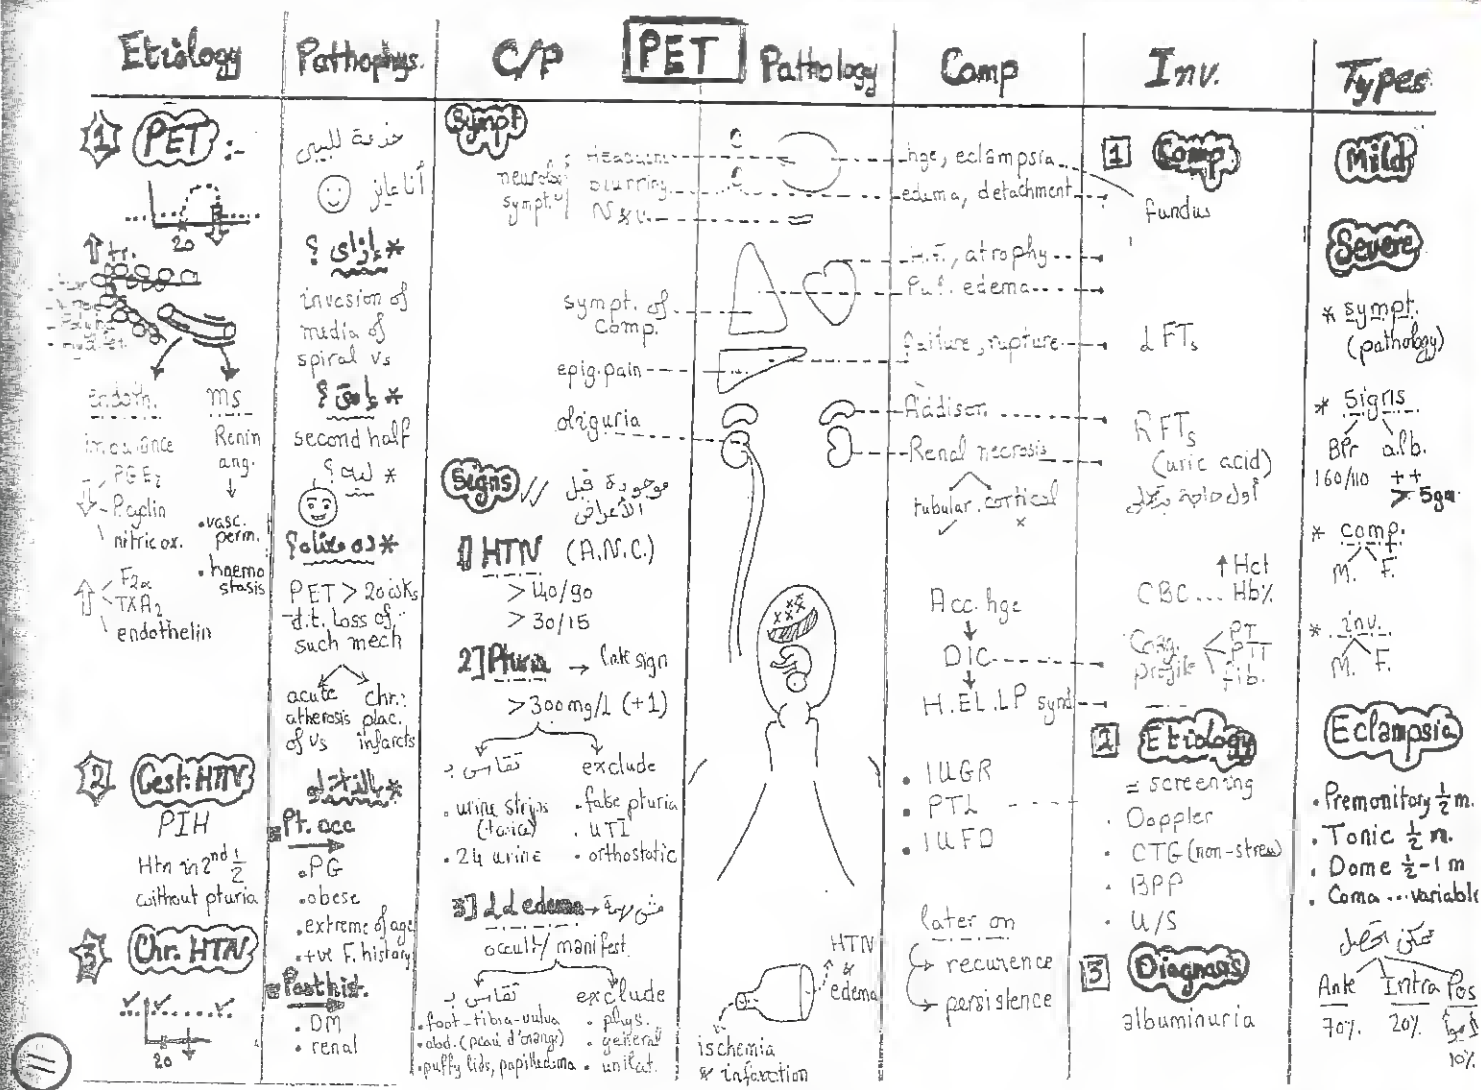 PET
Etiology
1 PET :-
20
↑ tr.
endoth.
imbalance
PGE₂
P.cyclin
nitric ox.
F2α
TXA₂
endothelin
ms
Renin
ang.
• vasc.
perm.
• haemo
stasis
2 Gest. HTN
PIH
Htn in 2nd ½
without pturia
3 Chr. HTN
20
Pathophys.
أنا عايز
* إزاى ؟
invasion of
media of
spiral vs
* إمتى ؟
second half
* ليه ؟
PET > 20 wks
d.t. loss of
such mech
acute
atherosis
of vs
chr.:
plac.
infarcts
Pt. acc
• PG
• obese
• extreme of age
• +ve F. history
Past hist.
• DM
• renal
C/P
Sympt
neurolog.
sympt.
Headache
blurring
N & V
sympt. of
Comp.
epig. pain
oliguria
Signs
موجودة قبل
الأعراض
1] HTN (A.N.C.)
> 140/90
> 30/15
2] Pturia → late sign
> 300 mg/L (+1)
تقاس بـ
• urine strips
(twice)
• 24 urine
exclude
• false pturia
• UTI
• orthostatic
3] LL edema → مش مهمة
occult / manifest
تقاس بـ
• foot-tibia-vulva
• abd. (peau d'orange)
• puffy lids, papilledema
exclude
• phys.
• general
• unilat.
Pathology
HTN
&
edema
ischemia
& infarction
Comp
hge, eclampsia
edema, detachment
H.F., atrophy
Pul. edema
failure, rupture
Addison
Renal necrosis
tubular. cortical
Acc. hge
DIC
H.EL.LP synd
• IUGR
• PTL
• IUFD
later on
recurence
persistence
Inv.
1 Comp.
fundus
LFTs
RFTs
(uric acid)
أول حاجة بتعلى
CBC ... ↑Hct
Hb%
Coag.
profile
PT
PTT
fib.
2 Etiology
= screening
• Doppler
• CTG (non-stress)
• BPP
• U/S
3 Diagnosis
albuminuria
Types
Mild
Severe
* sympt.
(pathology)
* signs
BPr alb.
160/110 ++
> 5gm
* comp.
M. F.
* inv.
M. F.
Eclampsia
• Premonitory ½ m.
• Tonic ½ m.
• Dome ½-1 m
• Coma ... variable
ممكن تحصل
Ante Intra Pos
70% 20% 10%